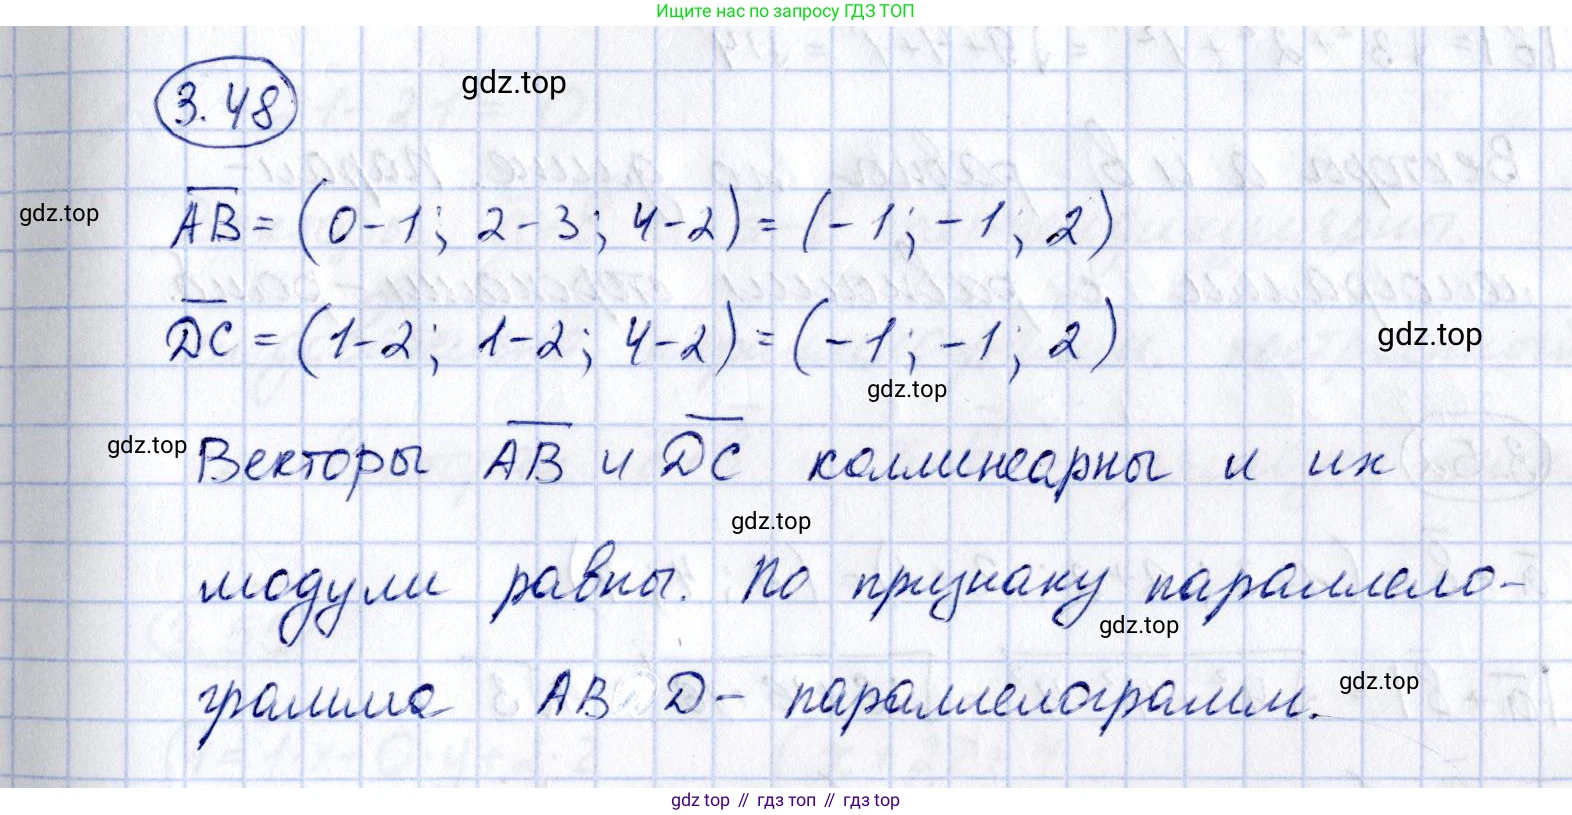 Ищите нас по запросу ГДЗ ТОП
3.48
gdz.top
gdz.top
AB = (0-1; 2-3; 4-2) = (-1; -1; 2)
DC = (1-2; 1-2; 4-2) = (-1; -1; 2)
gdz.top
gdz.top
gdz.top
Векторы AB и DC коллинеарны и их
gdz.top
модули равны. По признаку параллело-
gdz.top
грамма AB D - параллелограмм.
gdz.top
gdz top // гдз топ // гдз top